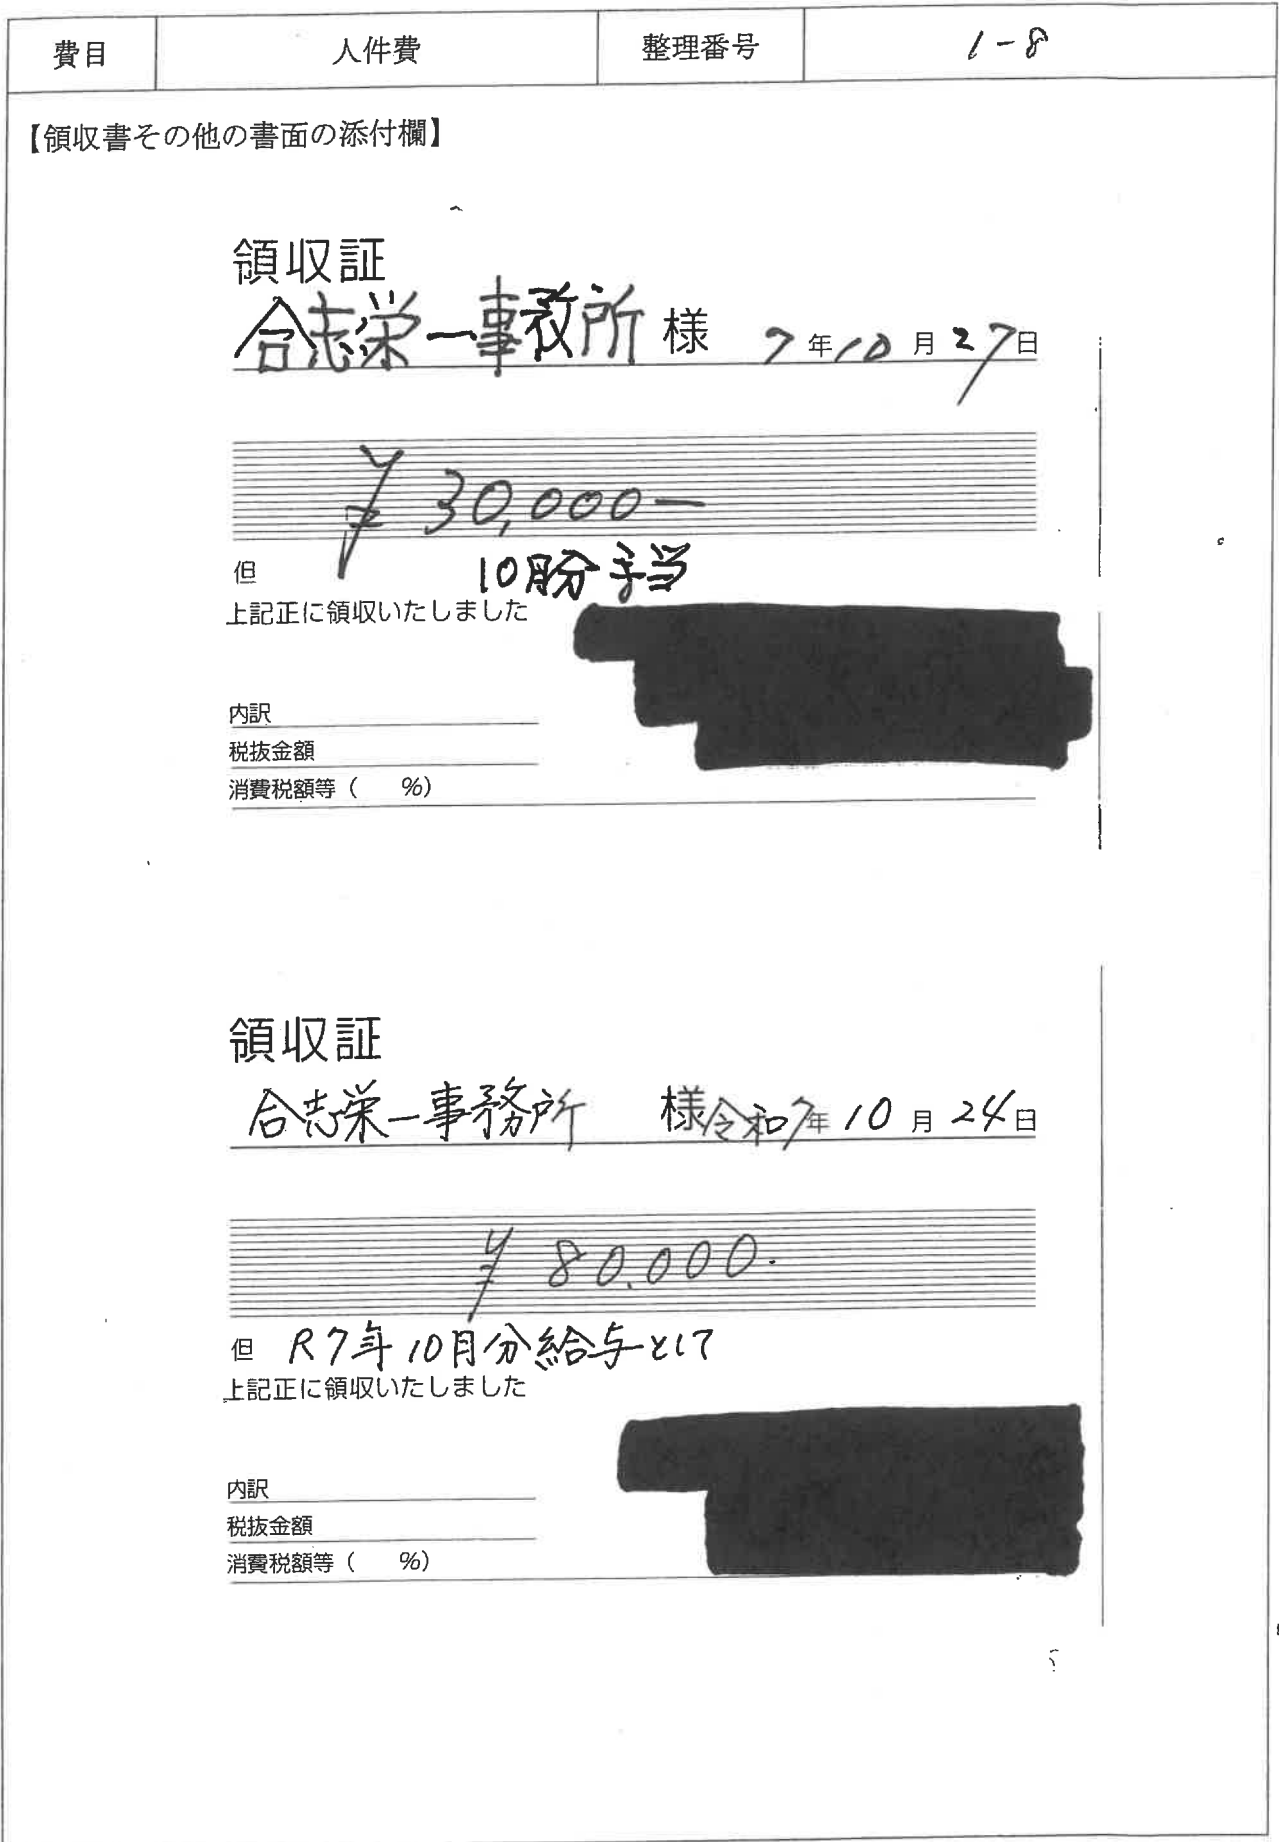 費目 人件費 整理番号 1-8
【領収書その他の書面の添付欄】
領収証
合志栄一事務所 様 7年10月27日
¥30,000-
但 10月分手当
上記正に領収いたしました
内訳
税抜金額
消費税額等( %)
領収証
合志栄一事務所 様 令和7年10月24日
¥80.000.
但 R7年10月分給与として
上記正に領収いたしました
内訳
税抜金額
消費税額等( %)